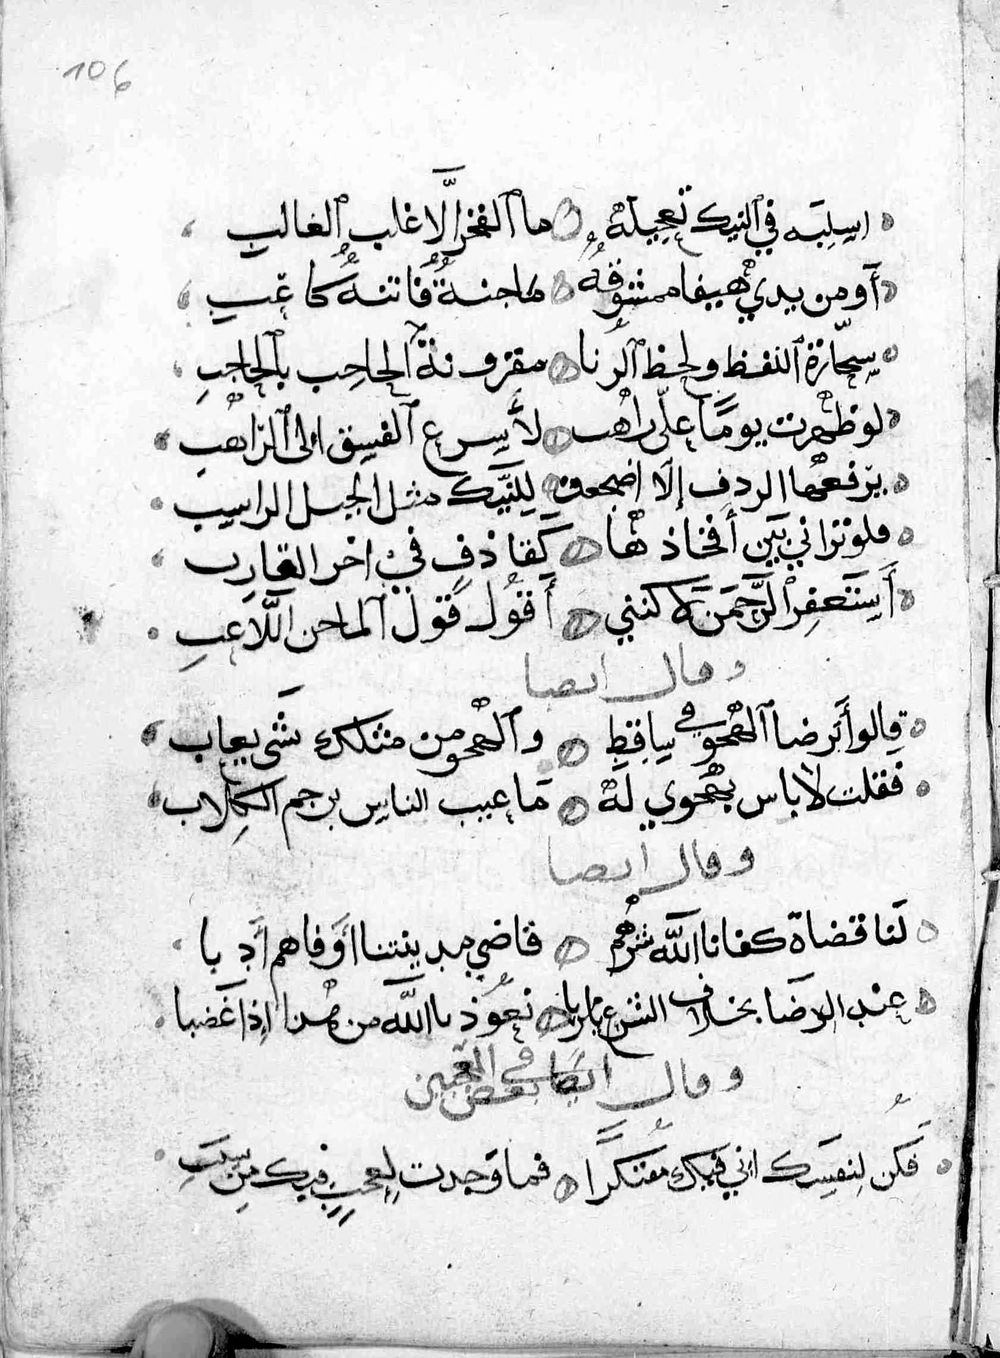 106
اسلبه في النيك تعجيله ما الفخر إلَّا غالب الغالبِ
أو من يدي هيفا ممشوقةُ ماجنةُ فُاتنةُ كاعَبِ
سحّارة اللفظ ولحظ الرنا مقرونة الحاجب بالحاجبِ
لو ظهرت يومًا على راهب لأسرع الفسق الى الراهبِ
يرفعها الردف إلا اضجعت لِلنَّيك مثل الجبل الراسب
فلو تراني بَين أفخاذها كَقاذفٍ في اخر القارب
أَستَغفِر الرَّحمَن لَاكنني أَقوُل قَول الماجن اللَّاعبِ
وقال ايضا
قالوا أَترضا الهجو في ساقطِ والهجو من مثلك شَي يعاب
فقلت لا باس بهجوي له مَا عيب الناس برجم الكِلاب
وقال ايضا
لَنا قضاة كفانا اللَّه شرهم قاضي مدينتنا أَوفاهم أَدبا
عند الرضَا بخلاف الشرع نعُوذ باللَّه من هذا إذا غَضبا
وقال ايضا في بعض المعجبين
فَكن لِنفسَك اني فيك مفتكرًا فما وَجدت لِعجبٍ فيك مِن سبَبِ